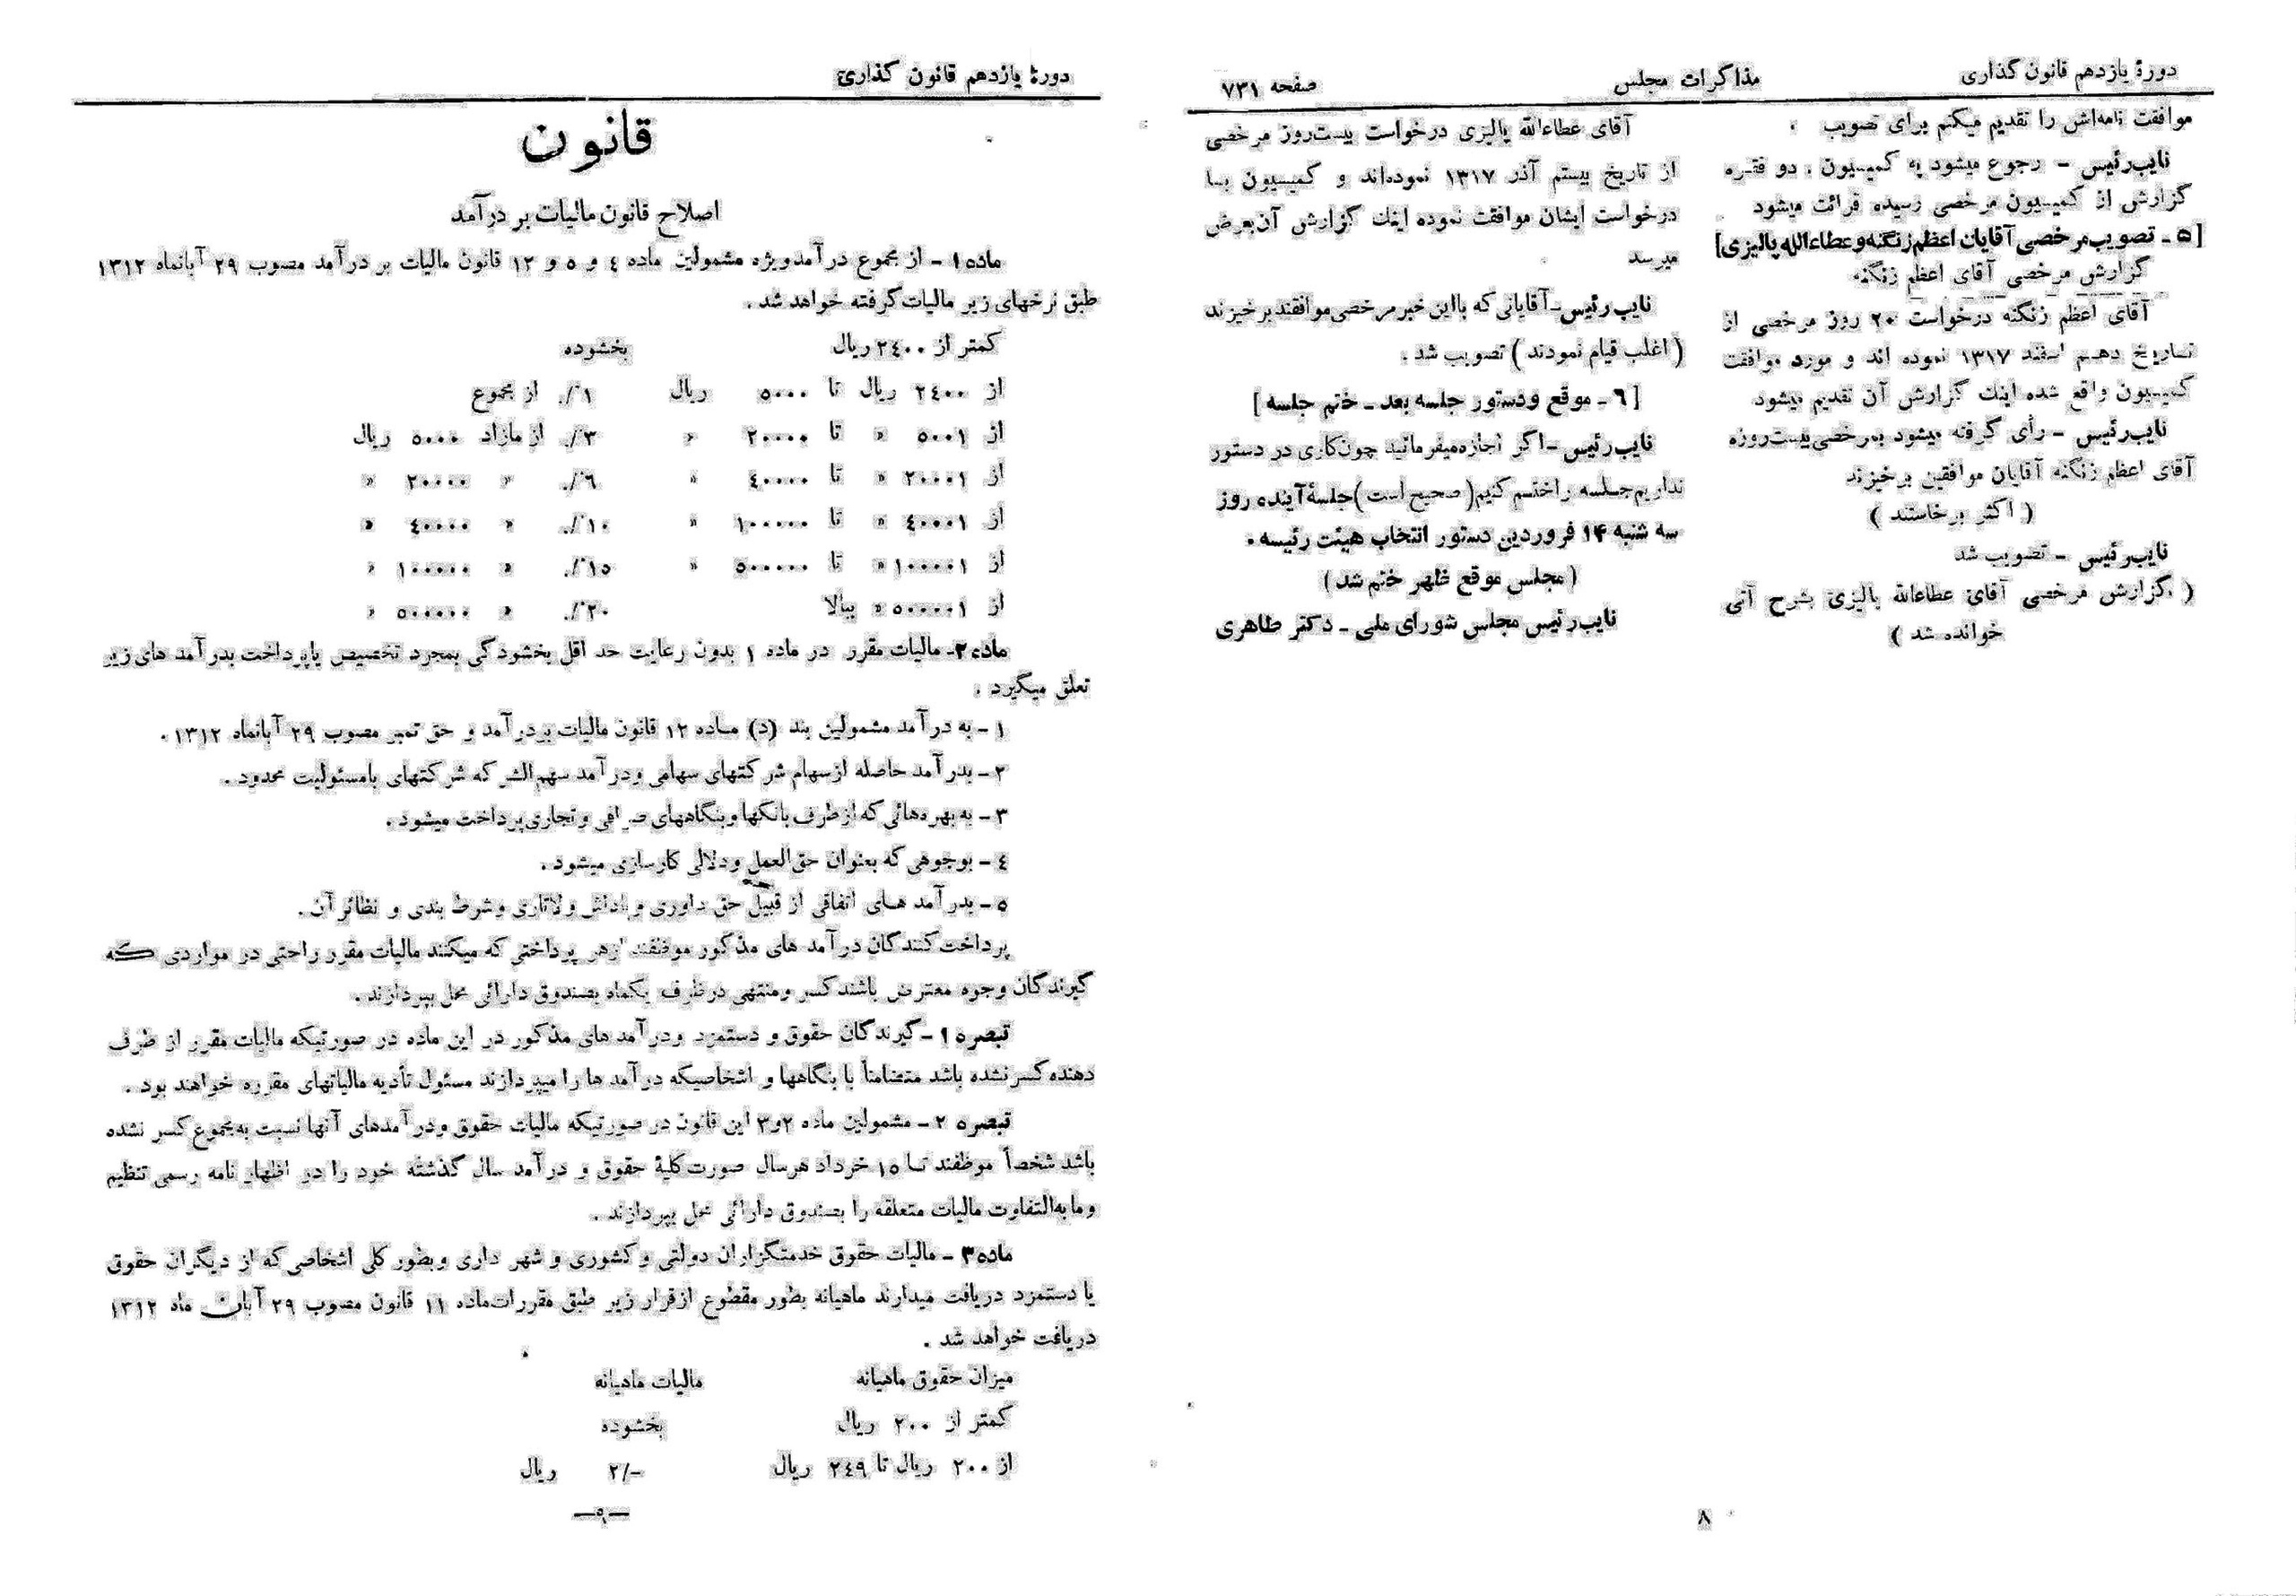 دورهٔ یازدهم قانون گذاری
مذاکرات مجلس
صفحه ۷۳۱
موافقت نامه‌اش را تقدیم میکنم برای تصویب .
نایب‌رئیس - رجوع میشود به کمیسیون . دو فقره
گزارش از کمیسیون مرخصی رسیده قرائت میشود
[۵ - تصویب مرخصی آقایان اعظم زنگنه و عطاءالله پالیزی]
گزارش مرخصی آقای اعظم زنگنه
آقای اعظم زنگنه درخواست ۲۰ روز مرخصی از
تاریخ دهم اسفند ۱۳۱۷ نموده اند و مورد موافقت
کمیسیون واقع شده اینك گزارش آن تقدیم میشود
نایب‌رئیس - رأی گرفته میشود بمرخصی بیست‌روزه
آقای اعظم زنگنه آقایان موافقین برخیزند
( اکثر برخاستند )
نایب‌رئیس - تصویب شد
( گزارش مرخصی آقای عطاءالله پالیزی بشرح آتی
خوانده شد )
آقای عطاءالله پالیزی درخواست بیست‌روز مرخصی
از تاریخ بیستم آذر ۱۳۱۷ نموده‌اند و کمیسیون بـا
درخواست ایشان موافقت نموده اینك گزارش آن‌بعرض
میرسد
نایب رئیس- آقایانی که بااین خبر مرخصی موافقند برخیزند
( اغلب قیام نمودند ) تصویب شد .
[ ۶ - موقع و دستور جلسه بعد - ختم جلسه ]
نایب رئیس - اگر اجازه میفرمائید چون کاری در دستور
نداریم جلسه را ختم کنیم ( صحیح است ) جلسهٔ آینده روز
سه شنبه ۱۴ فروردین دستور انتخاب هیئت رئیسه .
( مجلس موقع ظهر ختم شد )
نایب رئیس مجلس شورای ملی - دکتر طاهری
۸
دورهٔ یازدهم قانون گذاری
قانون
اصلاح قانون مالیات بر درآمد
ماده ۱ - از مجموع درآمد ویژه مشمولین ماده ٤ و ٥ و ۱۲ قانون مالیات بر درآمد مصوب ۲۹ آبانماه ۱۳۱۲
طبق نرخهای زیر مالیات گرفته خواهد شد .
کمتر از ۲٤۰۰ ریال بخشوده
از ۲٤۰۰ ریال تا ٥۰۰۰ ریال ۱٪ از مجموع
از ٥۰۰۱ « تا ۲۰۰۰۰ « ۳٪ از مازاد ٥۰۰۰ ریال
از ۲۰۰۰۱ « تا ٤۰۰۰۰ « ٦٪ « ۲۰۰۰۰ «
از ٤۰۰۰۱ « تا ۱۰۰۰۰۰ « ۱۰٪ « ٤۰۰۰۰ «
از ۱۰۰۰۰۱ « تا ٥۰۰۰۰۰ « ۱٥٪ « ۱۰۰۰۰۰ «
از ٥۰۰۰۰۱ « ببالا ۲۰٪ « ٥۰۰۰۰۰ «
ماده ۲- مالیات مقرر در ماده ۱ بدون رعایت حد اقل بخشودگی بمجرد تخصیص یا پرداخت بدرآمد های زیر
تعلق میگیرد .
۱ - به درآمد مشمولین بند (د) مـاده ۱۲ قانون مالیات بردرآمد و حق تمبر مصوب ۲۹ آبانماه ۱۳۱۲ .
۲ - بدرآمد حاصله از سهام شرکتهای سهامی و درآمد سهم الشرکه شرکتهای بامسئولیت محدود .
۳ - به بهره‌هائی که از طرف بانکها و بنگاههای صرافی و تجاری پرداخت میشود .
٤ - بوجوهی که بعنوان حق‌العمل و دلالی کارسازی میشود .
٥ - بدرآمد هـای اتفاقی از قبیل حق داوری و پاداش و لاتاری و شرط بندی و نظائر آن .
پرداخت‌کنندگان درآمد های مذکور موظفند ازهر پرداختی که میکنند مالیات مقرر راحتی در مواردی که
گیرندگان وجوه معترض باشند کسر و منتهی درظرف یکماه بصندوق دارائی محل بپردازند .
تبصره ۱ - گیرندگان حقوق و دستمزد و درآمد های مذکور در این ماده در صورتیکه مالیات مقرر از طرف
دهنده کسر نشده باشد متضامناً با بنگاهها و اشخاصیکه درآمد ها را میپردازند مسئول تأدیه مالیاتهای مقرره خواهند بود .
تبصره ۲ - مشمولین ماده ۲و۳ این قانون در صورتیکه مالیات حقوق و درآمدهای آنها نسبت به مجموع کسر نشده
باشد شخصاً موظفند تـا ۱٥ خرداد هرسال صورت کلیهٔ حقوق و درآمد سال گذشته خود را در اظهار نامه رسمی تنظیم
و مابه‌التفاوت مالیات متعلقه را بصندوق دارائی محل بپردازند .
ماده ۳ - مالیات حقوق خدمتگزاران دولتی و کشوری و شهر داری و بطور کلی اشخاصی که از دیگران حقوق
یا دستمزد دریافت میدارند ماهیانه بطور مقطوع ازقرار زیر طبق مقررات ماده ۱۱ قانون مصوب ۲۹ آبان ماه ۱۳۱۲
دریافت خواهد شد .
میزان حقوق ماهیانه مالیات ماهیانه
کمتر از ۲۰۰ ریال بخشوده
از ۲۰۰ ریال تا ۲٤۹ ریال ۲/- ریال